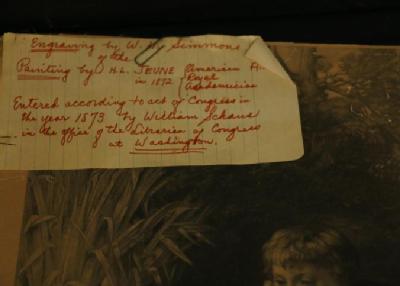 Engraving by W. H. Simmons
of the
Painting by H. L. JEUNE American
in 1872 Royal
Academician
Entered according to act of Congress in
the year 1873 by William Schaus
in the office of the Librarian of Congress
at Washington.